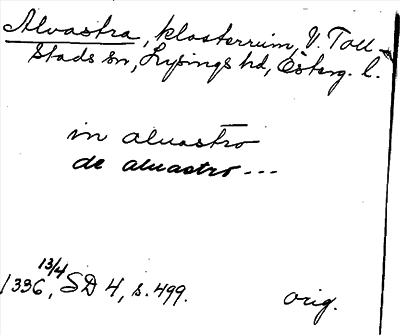 Alvastra, klosterruin, V. Toll-
stads sn, Lysings hd, Österg. l.
in aluastro
de aluastro...
13/4
1336, SD 4, s. 499. orig.